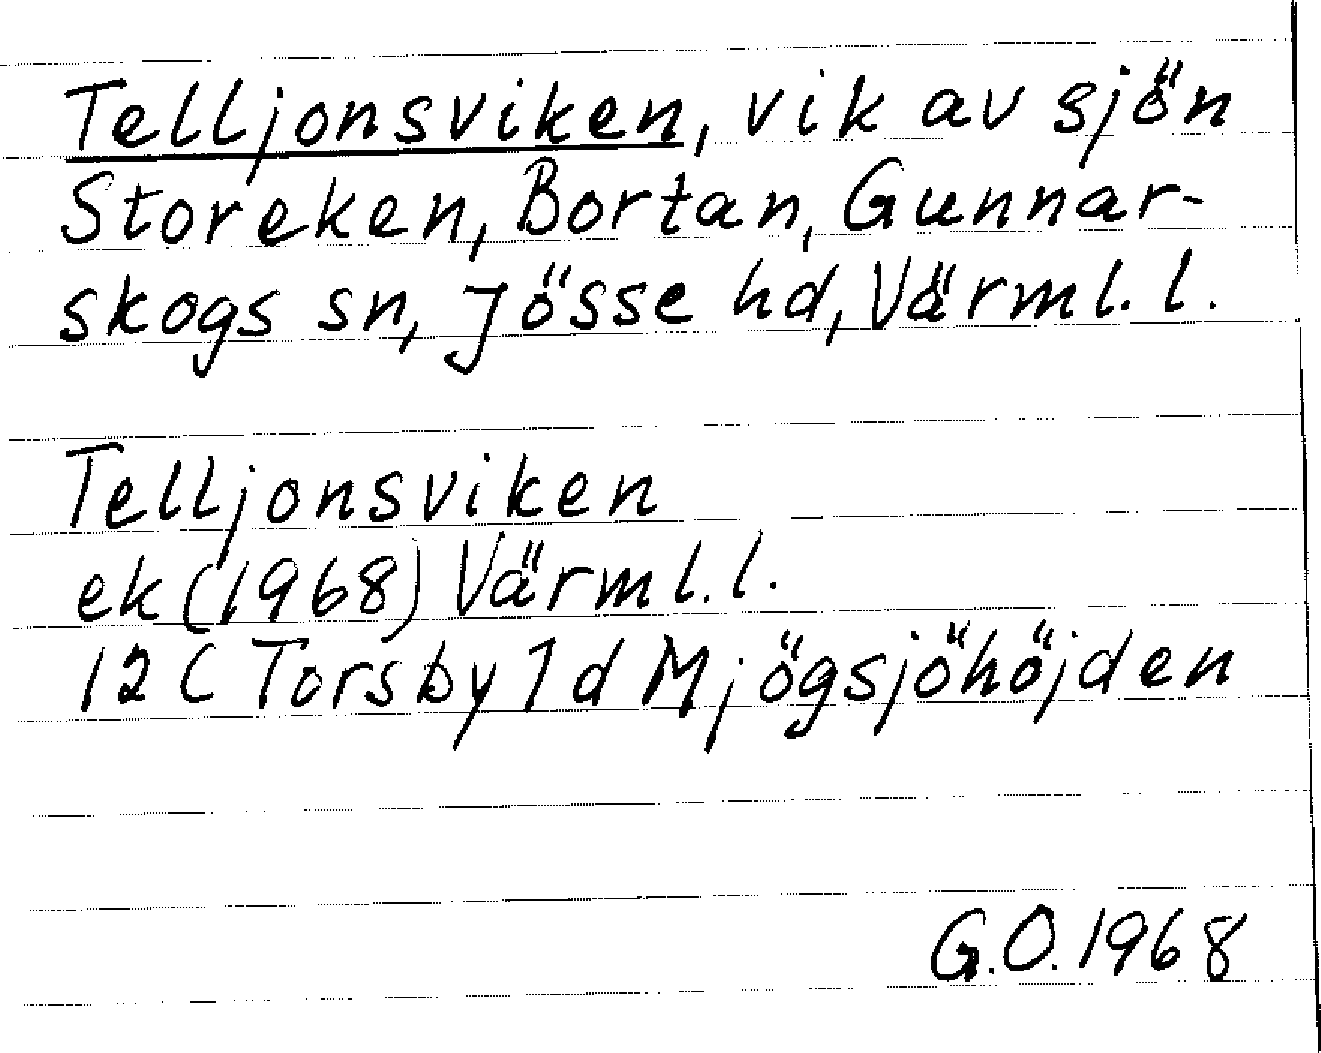 Telljonsviken, vik av sjön
Storeken, Bortan, Gunnar-
skogs sn, Jösse hd, Värml. l.
Telljonsviken
ek (1968) Värml. l.
12 C Torsby 1 d Mjögsjöhöjden
G.O. 1968